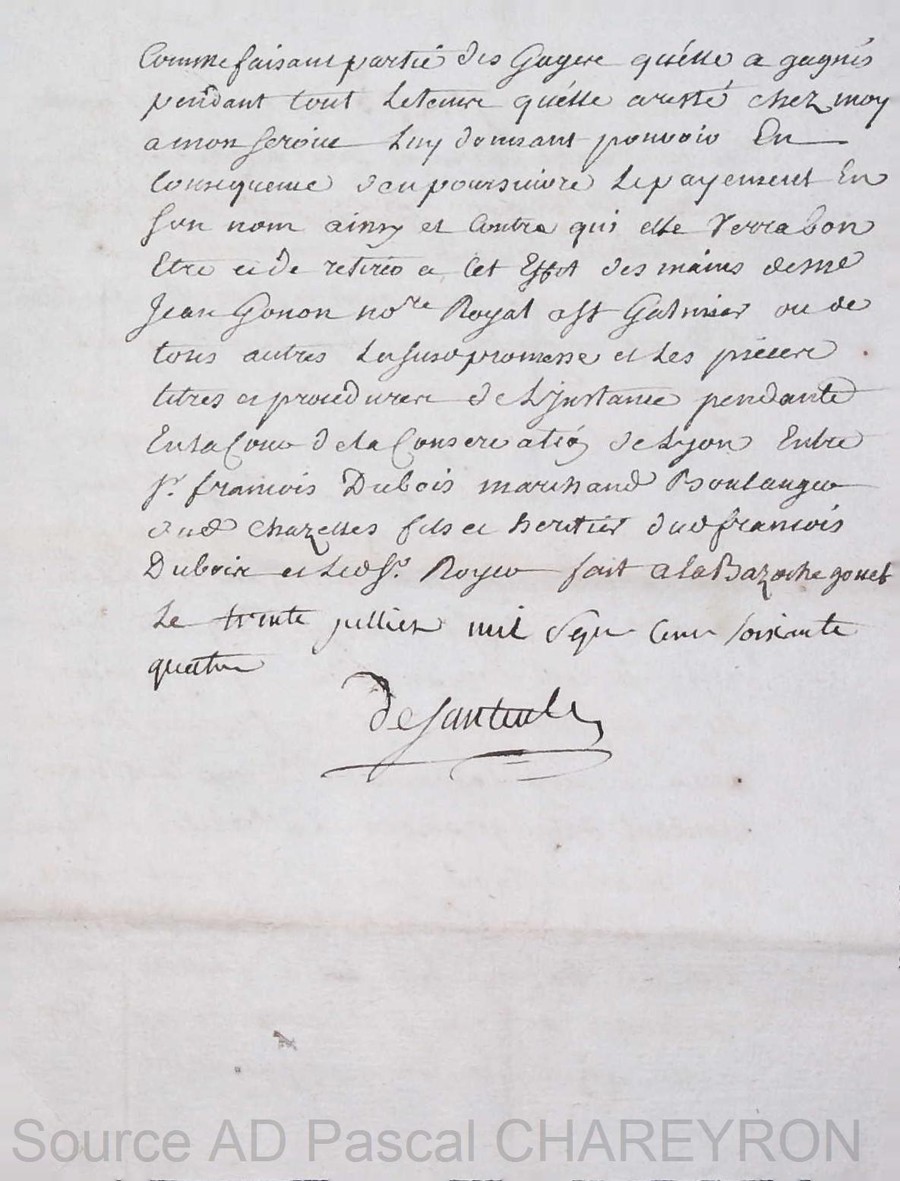 Comme faisant partie des Gages quelle a gagnés
pendant tout le temps quelle a resté chez moy
a mon service Luy donnant pouvoir En
Consequence d'en poursuivre le payement En
son nom ainsy et Contre qui elle Verra bon
Etre et de retirer a Cet Effet des mains de me
Jean Gonon nore Royal a st Galmier ou de
tous autres La susd promesse et Les pieces
titres et procedures de L'jnstance pendante
En la Cour de la Conservatio de Lyon Entre
sr. francois Dubois marchand Boulanger
dud Chazelles fils et heritier dud francois
Dubois et Led sr. Royer fait a la Bazoche gouet
Le trente juillet mil Sept Cent soixante
quatre
de Santeul
Source AD Pascal CHAREYRON